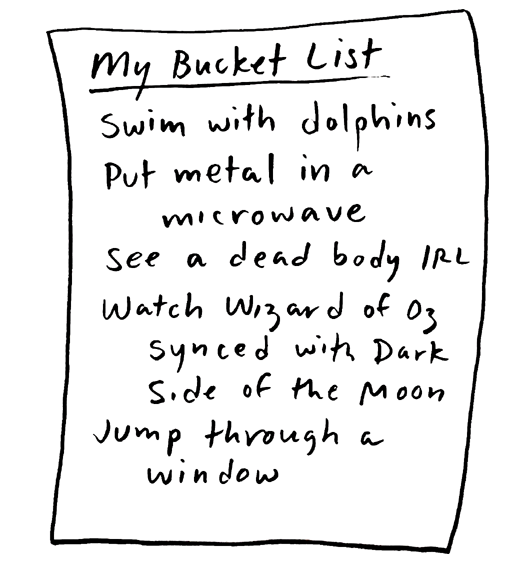 My Bucket List
Swim with dolphins
Put metal in a
microwave
See a dead body IRL
Watch Wizard of Oz
synced with Dark
Side of the Moon
Jump through a
window